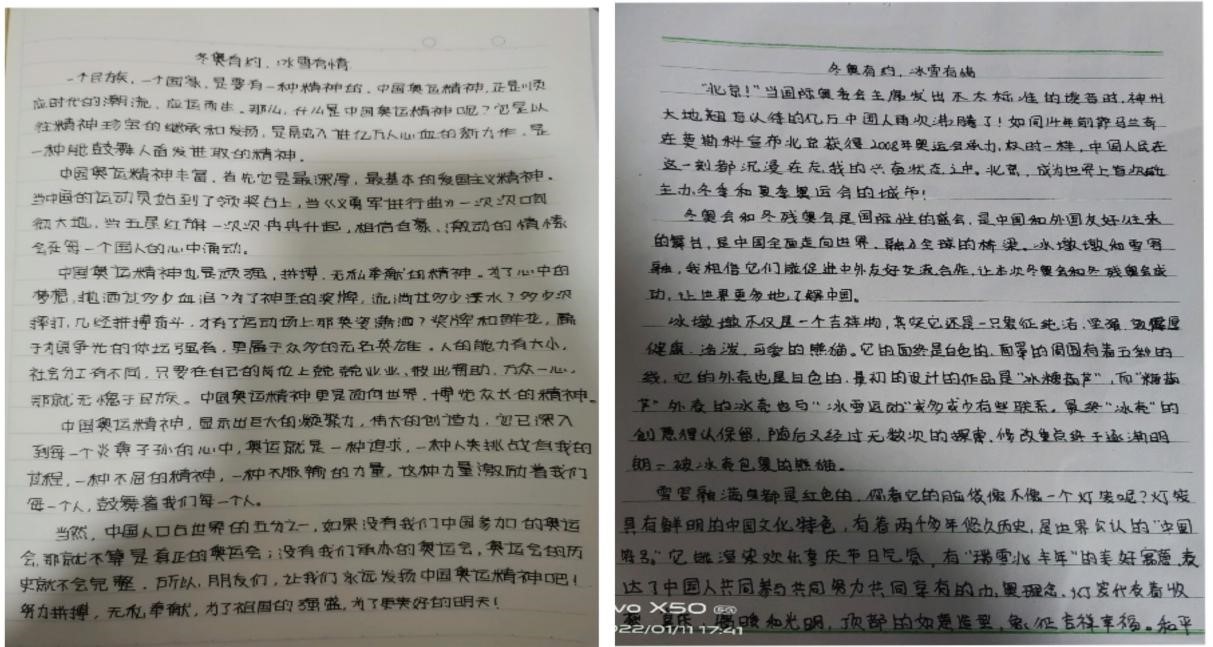 冬奥有约，冰雪有情
一个民族，一个国家，是要有一种精神的，中国奥运精神，正是顺
应时代的潮流，应运而生。那么，什么是中国奥运精神呢？它是以
往精神珍宝的继承和发扬，是融入进亿万人心血的新力作，是
一种能鼓舞人奋发进取的精神。
中国奥运精神丰富，首先它是最深厚，最基本的爱国主义精神。
当中国的运动员站到了领奖台上，当《义勇军进行曲》一次次回
大地，当五星红旗一次次冉冉升起，相信自豪、激动的情愫
会在每一个国人的心中涌动。
中国奥运精神也是顽强，拼搏，无私奉献的精神。为了心中的
梦想，挑洒过多少血泪？为了神圣的奖牌，流淌过多少汗水？多少次
摔打，几经拼搏奋斗，才有了运动场上那英姿潇洒？奖牌和鲜花，属
于为国争光的体坛强者，更属于众多的无名英雄。人的能力有大小，
社会分工有不同，只要在自己的岗位上兢兢业业，彼此帮助，万众一心，
那就无愧于民族。中国奥运精神更是面向世界，博览众长的精神。
中国奥运精神，显示出巨大的凝聚力，伟大的创造力，它已深入
到每一个炎黄子孙的心中，奥运就是一种追求，一种人类挑战自我的
过程，一种不屈的精神，一种不服输的力量，这种力量激励着我们
每一个人，鼓舞着我们每一个人。
当然，中国人口占世界的五分之一，如果没有我们中国参加的奥运
会，那就不算是真正的奥运会；没有我们承办的奥运会，奥运会的历
史就不会完整。所以，朋友们，让我们永远发扬中国奥运精神吧！
努力拼搏，无私奉献，为了祖国的强盛，为了更美好的明天！
冬奥有约，冰雪有
“北京！”当国际奥委会主席发出不太标准的读音时，神州
大地翘首以待的亿万中国人再次沸腾了！如同14年前萨马兰奇
在莫斯科宣布北京获得2008年奥运会承办权时一样，中国人民在
这一刻都沉浸在忘我的兴奋状态之中。北京，成为世界上首次
主办冬季和夏季奥运会的城市！
冬奥会和冬残奥会是国际性的盛会，是中国和外国友好往来
的舞台，是中国全面走向世界、融入全球的桥梁。冰墩墩和雪容
融，我相信它们能促进中外友好交流合作，让本次冬奥会和冬残奥会成
功，让世界更多地了解中国。
冰墩墩不仅是一个吉祥物，其实它还是一只象征纯洁、坚强、敦厚
健康、活泼、可爱的熊猫。它的面终是白色的，面罩的周围有着五彩的
线，它的外壳也是白色的，最初的设计的作品是“冰糖葫芦”，而“糖葫
芦”外表的冰壳也与“冰雪运动”或多或少有些联系。最终“冰壳”的
创意得以保留，随后又经过无数次的探索，修改重点终于逐渐明
朗—被冰壳包裹的熊猫。
雪容融满身都是红色的，你看它的脑袋像不像一个灯笼呢？灯笼
具有鲜明的中国文化特色，有着两千多年悠久历史，是世界公认的“中国
符号。”它能渲染欢乐喜庆节日气氛，有“瑞雪兆丰年”的美好寓意，表
达了中国人共同参与共同努力共同享有的办奥理念，灯笼代表着收
喜庆、温暖和光明，顶部的如意造型，象征吉祥幸福。和平
vo X50 5G
022/01/11 17:41